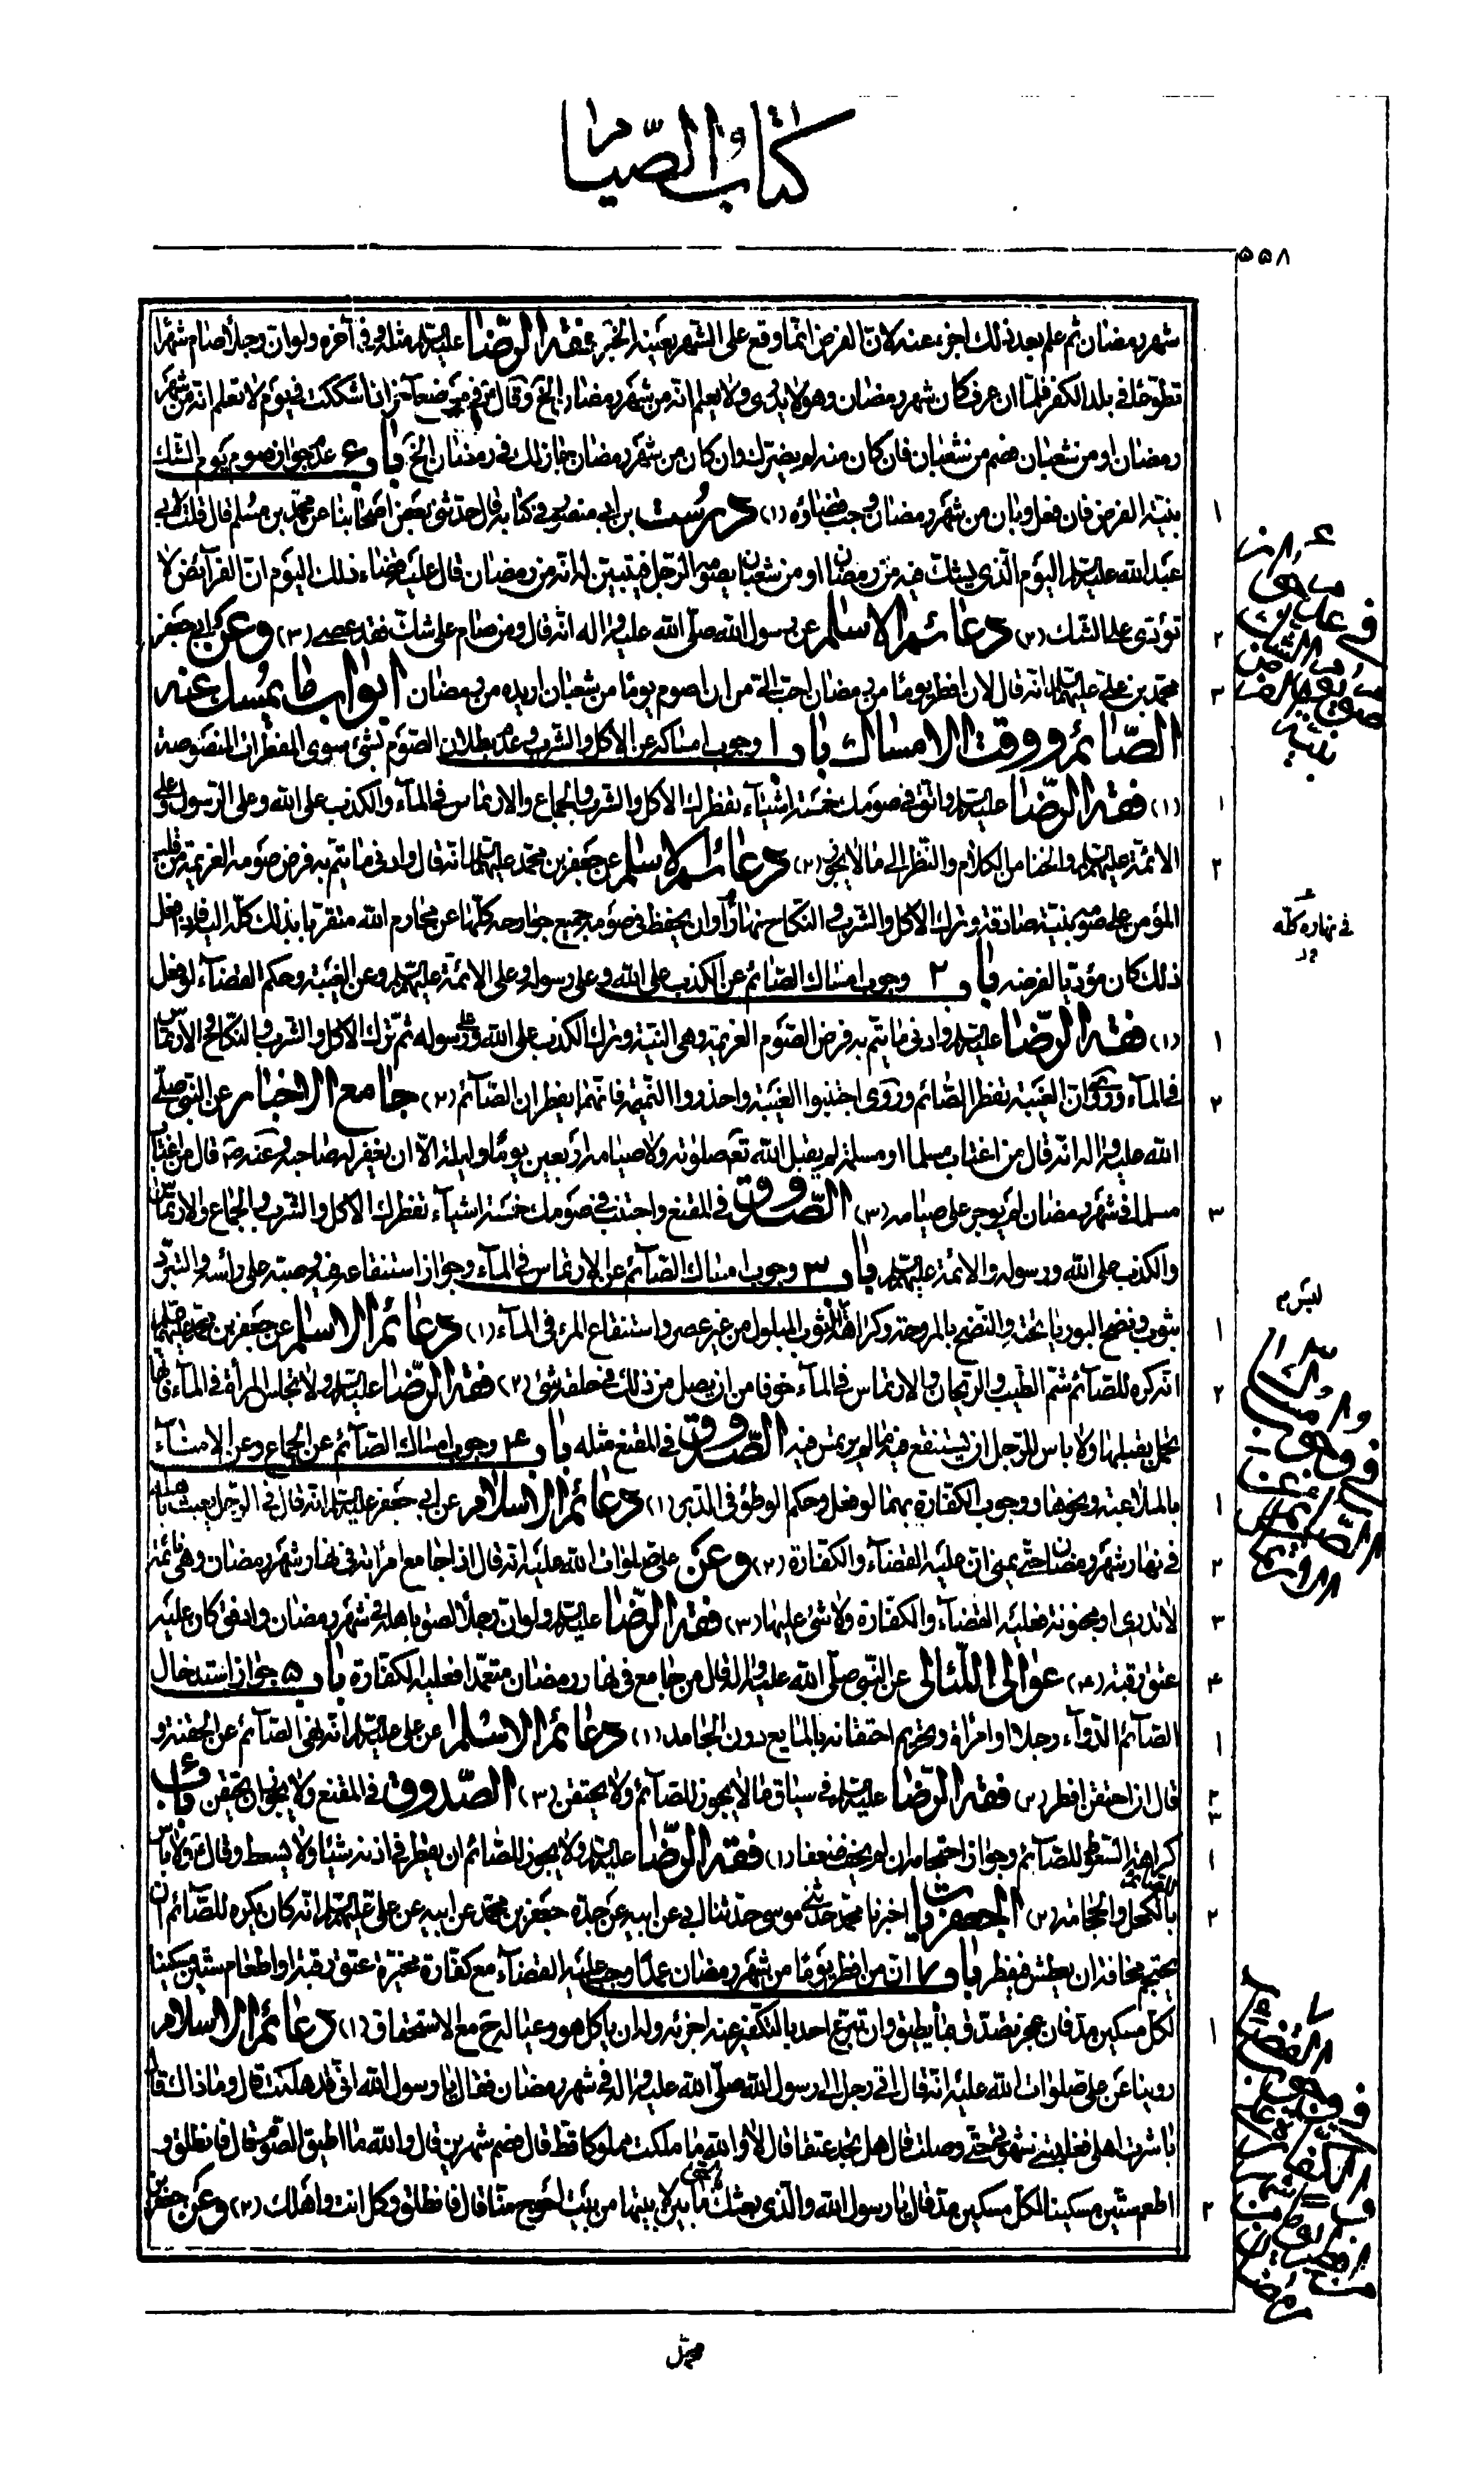 كتاب الصيام
٥٥٨
شهر رمضان ثم علم بعد ذلك اجزء عنه لان الفرض انما وقع على الشهر بعينه الخبر فقه الرضا عليه السلم مثله وفي آخره ولو ان رجلا صام شهرا
تطوعا في بلد الكفر فلما ان عرف كان شهر رمضان وهو لا يدري ولا يعلم انه من شهر رمضان الخ وقال في موضع آخر اذا شككت في يوم لا تعلم انه من شهر
رمضان او من شعبان فصم من شعبان فان كان منه لم يضرك وان كان من شهر رمضان جاز لك في رمضان الخبر باب ٦ عدم جواز صوم يوم الشك
بنية الفرض فان فعل وبان من شهر رمضان وجب قضاؤه (١) درست بن ابي منصور في كتابه قال حدثني بعض اصحابنا عن محمد بن مسلم قال قلت لابي
عبد الله عليه السلم اليوم الذي يشك فيه من رمضان او من شعبان يصومه الرجل فيتبين له انه من رمضان قال عليه قضاء ذلك اليوم ان الفرآئض لا
تؤدى على الشك (٢) دعائم الاسلم عن رسول الله صلى الله عليه واله انه قال ومن صام على شك فقد عصى (٣) وعن ابي جعفر
محمد بن علي عليهما السلم انه قال لان افطر يوما من رمضان احب الي من ان اصوم يوما من شعبان ازيده من رمضان ابواب ما يمسك عنه
الصائم ووقت الامساك باب ١ وجوب امساكه عن الاكل والشرب وعدم بطلان الصوم بشئ سوى المفطرات المنصوصة
(١) فقه الرضا عليه السلم واتق في صومك خمسة اشيآء تفطرك الاكل والشرب والجماع والارتماس في المآء والكذب على الله وعلى الرسول وعلى
الائمة عليهم السلم والخنا من الكلام والنظر الى ما لا يجوز (٢) دعائم الاسلم عن جعفر بن محمد عليهما السلم انه قال وادنى ما يتم به فرض صومه العزيمة من قلب
المؤمن على صومه بنية صادقة وترك الاكل والشرب والنكاح نهارا وان يحفظ في صومه جميع جوارحه كلها عن محارم الله متقربا بذلك كله اليه فاذا فعل
ذلك كان مؤديا لفرضه باب ٢ وجوب امساك الصائم عن الكذب على الله وعلى رسوله وعلى الائمة عليهم السلم وعن الغيبة وحكم القضآء لو فعل
(١) فقه الرضا عليه السلم وادنى ما يتم به فرض الصوم العزيمة وهي النية وترك الكذب على الله وعلى رسوله ثم ترك الاكل والشرب والنكاح والارتماس
في المآء وروي ان الغيبة تفطر الصائم وروى اجتنبوا الغيبة واحذروا النميمة فانهما يفطران الصآئم (٢) جامع الاخبار عن النبي صلى
الله عليه واله انه قال من اغتاب مسلما او مسلمة لم يقبل الله تعالى صلوته ولا صيامه اربعين يوما وليلة الا ان يغفر له صاحبه وعنه ص قال من اغتاب
مسلما في شهر رمضان لم يوجر على صيامه (٣) الصدوق في المقنع واجتنب في صومك خمسة اشيآء تفطرك الاكل والشرب والجماع والارتماس
والكذب على الله ورسوله والائمة عليهم السلم باب ٣ وجوب امساك الصآئم عن الارتماس في المآء وجواز استنقاعه فيه وصبه على رأسه والتبرد
بثوب ونضح البوريا تحته والنضح بالمروحة وكراهة الثوب المبلول من غير عصر واستنقاع المرءة في المآء (١) دعائم الاسلم عن جعفر بن محمد عليهما السلم
انه كره للصآئم شم الطيب والريحان والارتماس في المآء خوفا من ان يصل من ذلك في حلقه شئ (٢) فقه الرضا عليه السلم ولا تجلس المرأة في المآء فانها
تحمل بقبلها ولا باس للرجل ان يستنقع فيه ما لم يرتمس فيه الصدوق في المقنع مثله باب ٤ وجوب امساك الصآئم عن الجماع وعن الامنآء
بالملاعبة ونحوها ووجوب الكفارة بهما لو فعل وحكم الوطئ في الدبر (١) دعائم الاسلام عن ابي جعفر عليه السلم انه قال في الرجل يعبث باهله
في نهار شهر رمضان حتى يمني ان عليه القضآء والكفارة (٢) وعن علي صلوات الله عليه انه قال اذا جامع امرأته في نهار شهر رمضان وهي نائمة
لا تدري او مجنونة فعليه القضآء والكفارة ولا شئ عليها (٣) فقه الرضا عليه السلم ولو ان رجلا لصق باهله في شهر رمضان وادفق كان عليه
عتق رقبة (٤) عوالي اللئالي عن النبي صلى الله عليه واله قال من جامع في نهار رمضان متعمدا فعليه الكفارة باب ٥ جواز استدخال
الصآئم الدوآء رجلا او امرأة وتحريم احتقانه بالمايع دون الجامد (١) دعائم الاسلم عن علي عليه السلم انه نهى الصآئم عن الحقنة و
قال ان احتقن افطر (٢) فقه الرضا عليه السلم في سياق ما لا يجوز للصآئم ولا يحتقن (٣) الصدوق في المقنع ولا يجوز ان يحتقن باب ٦
كراهة السعوط للصآئم وجواز احتجامه ان لم يخف ضعفا (١) فقه الرضا عليه السلم ولا يجوز للصائم ان يقطر في اذنه شيئا ولا يسعط وقال ولا باس
للصائم بالكحل والحجامة (٢) الجعفريات اخبرنا محمد حدثني موسى حدثنا ابي عن ابيه عن جده جعفر بن محمد عن ابيه عن علي عليهم السلم انه كان يكره للصآئم ان
يحتجم مخافة ان يعطش فيفطر باب ٧ ان من افطر يوما من شهر رمضان عمدا وجب عليه القضآء مع كفارة مخيرة عتق رقبة او اطعام ستين مسكينا
لكل مسكين مد فان عجز تصدق بما يطيق وان تبرع احد بالتكفير عنه اجزئه وله ان ياكل هو وعياله ح مع الاستحقاق (١) دعائم الاسلام
روينا عن علي صلوات الله عليه انه قال اتى رجل الى رسول الله صلى الله عليه واله في شهر رمضان فقال يا رسول الله اني قد هلكت قال وما ذاك قال
باشرت اهلي فغلبتني شهوتي حتى وصلت قال هل تجد عتقا قال لا والله ما ملكت مملوكا قط قال فصم شهرين قال والله ما اطيق الصوم قال فانطلق و
اطعم ستين مسكينا لكل مسكين مد قال يا رسول الله والذي بعثك بالحق ما بين لابتيها من بيت احوج منا قال فانطلق وكل انت واهلك (٢) وعن جعفر بن
في نهاره كله
ليس م
محمد